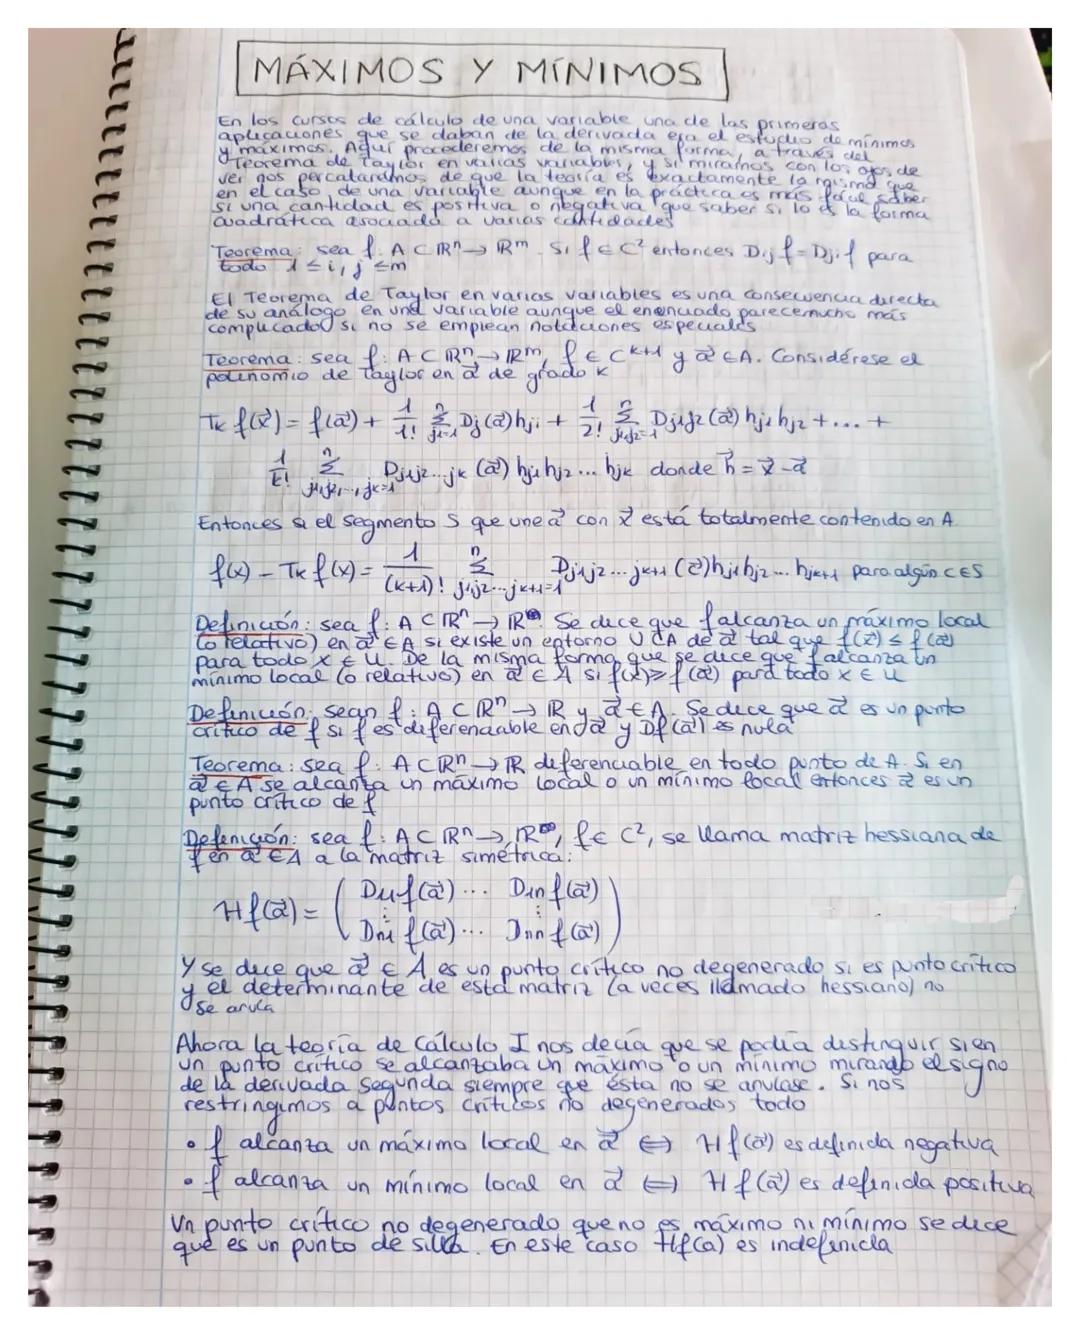 MÁXIMOS Y MÍNIMOS
En los cursos de cálculo de una variable una de las primeras
aplicaciones que se daban de la derivada era el estudio de mínimos
y máximos. Aquí procederemos de la misma forma, a través del
Teorema de Taylor en varias variables, y si miramos con los ojos de
ver nos percataremos de que la teoría es exactamente la misma que
en el caso de una variable aunque en la práctica es más fácil saber
si una cantidad es positiva o negativa que saber si lo es la forma
cuadrática asociada a varias cantidades
Teorema: sea f: A ⊂ ℝⁿ → ℝᵐ. Si f ∈ C² entonces Dij f = Dji f para
todo 1 ≤ i, j ≤ m
El Teorema de Taylor en varias variables es una consecuencia directa
de su análogo en una variable aunque el enunciado parece mucho más
complicado si no se emplean notaciones especiales
Teorema: sea f: A ⊂ ℝⁿ → ℝᵐ, f ∈ C^{k+1} y a⃗ ∈ A. Considérese el
polinomio de Taylor en a⃗ de grado k
Tk f(x⃗) = f(a⃗) + 1/1! Σ_{j1=1}^n Dj(a⃗)hj1 + 1/2! Σ_{j1j2=1}^n Dj1j2(a⃗)hj1hj2 + ... +
1/k! Σ_{j1,j2,...,jk=1}^n Dj1j2...jk (a⃗) hj1hj2...hjk donde h⃗ = x⃗ - a⃗
Entonces si el segmento S que une a⃗ con x⃗ está totalmente contenido en A
f(x) - Tk f(x) = 1/(k+1)! Σ_{j1j2...jk+1=1}^n Dj1j2...jk+1 (c⃗)hj1hj2...hjk+1 para algún c ∈ S
Definición: sea f: A ⊂ ℝⁿ → ℝ. Se dice que f alcanza un máximo local
(o relativo) en a⃗ ∈ A si existe un entorno U ⊂ A de a⃗ tal que f(x⃗) ≤ f(a⃗)
para todo x ∈ U. De la misma forma que se dice que f alcanza un
mínimo local (o relativo) en a⃗ ∈ A si f(x) ≥ f(a⃗) para todo x ∈ U
Definición: sean f: A ⊂ ℝⁿ → ℝ y a⃗ ∈ A. Se dice que a⃗ es un punto
crítico de f si f es diferenciable en a⃗ y Df(a⃗) es nula
Teorema: sea f: A ⊂ ℝⁿ → ℝ diferenciable en todo punto de A. Si en
a⃗ ∈ A se alcanza un máximo local o un mínimo local entonces a⃗ es un
punto crítico de f
Definición: sea f: A ⊂ ℝⁿ → ℝ, f ∈ C², se llama matriz hessiana de
f en a⃗ ∈ A a la matriz simétrica:
Hf(a⃗) = ( D11f(a⃗) ... D1n f(a⃗)
⋮ ⋮
Dn1 f(a⃗) ... Dnn f(a⃗) )
Y se dice que a⃗ ∈ A es un punto crítico no degenerado si es punto crítico
y el determinante de esta matriz (a veces llamado hessiano) no
se anula
Ahora la teoría de Cálculo I nos decía que se podía distinguir si en
un punto crítico se alcanzaba un máximo o un mínimo mirando el signo
de la derivada segunda siempre que ésta no se anulase. Si nos
restringimos a puntos críticos no degenerados todo
• f alcanza un máximo local en a⃗ ⟺ Hf(a⃗) es definida negativa
• f alcanza un mínimo local en a⃗ ⟺ Hf(a⃗) es definida positiva
Un punto crítico no degenerado que no es máximo ni mínimo se dice
que es un punto de silla. En este caso Hf(a) es indefinida